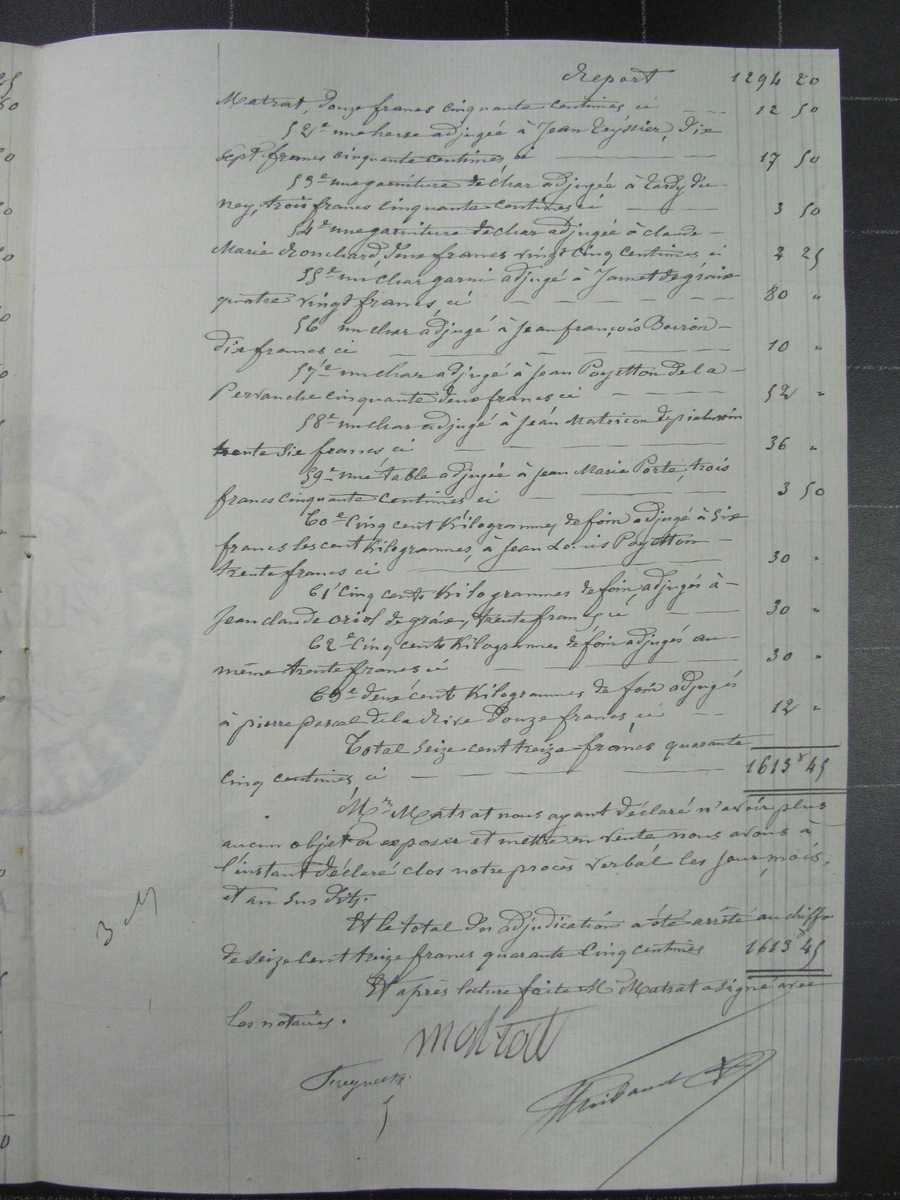 Report 1294 20
Matrat, douze francs cinquante centimes ci 12 50
52e une herse adjugée à Jean Teyssier, dix
sept francs cinquante centimes, ci 17 50
53e une garniture de char adjugée à Tardy du
ney, trois francs cinquante centimes ci 3 50
54e une garniture de char adjugée à claude
Marie deux francs vingt cinq centimes ci 2 25
55e un char garni adjugé à Jamet de graix
quatre vingt francs, ci 80 "
56 un char adjugé à Jean françois Boiron
dix francs ci 10 "
57e un char adjugé à Jean Poyetton de la
Pervanche cinquante deux francs ci 52 "
58e un char adjugé à Jean Matricon
trente six francs ci 36 "
59e une table adjugée à Jean Marie Porte, trois
francs cinquante centimes ci 3 50
60e Cinq cent Kilogrammes de foin adjugé à six
francs les cent kilogrammes, à Jean Louis Poyetton
trente francs ci 30 "
61e Cinq cents Kilogrammes de foin, adjugés à
Jean claude oriol de graix, trente francs ci 30 "
62e Cinq cents Kilogrammes de foin adjugés au
même trente francs ci 30 "
63e deux cents Kilogrammes de foin adjugés
à pierre pascal de la Rive douze francs, ci 12 "
Total seize cent treize francs quarante
cinq centimes ci 1613 f 45
Mr Matrat nous ayant déclaré n'avoir plus
aucun objet à exposer et mettre en vente nous avons à
l'instant déclaré clos notre procès verbal les jour, mois,
et an sus dits.
Et le total des adjudications a été arrêté au chiffre
de seize cent treize francs quarante cinq centimes 1613 f 45
Et après lecture faite Mr Matrat a signé avec
les notaires.
matrat